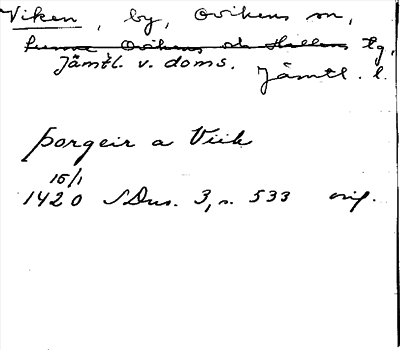 Viken, by, Ovikens sn,
Sunne Ovikens och Hallens tg,
Jämtl. v. doms. Jämtl. l.
þorgeir a Viik
15/1
1420 SDns. 3, s. 533 orig.